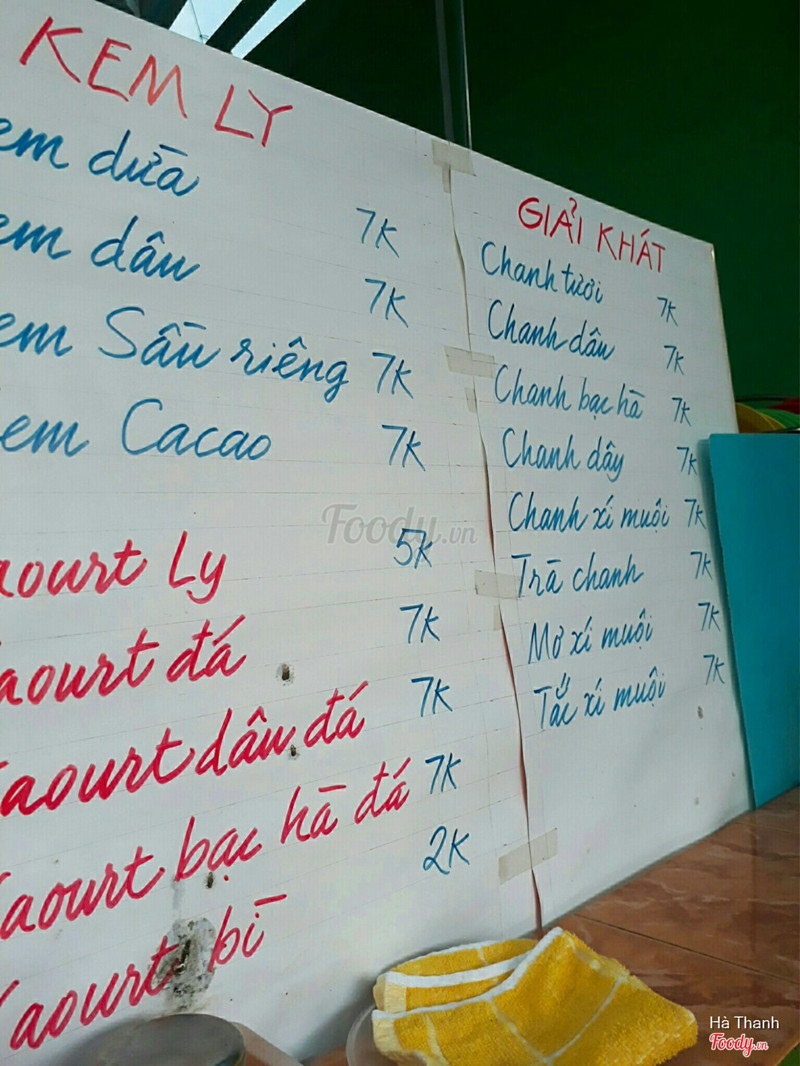 KEM LY
em dừa 7K
em dâu 7K
em Sầu riêng 7K
em Cacao 7K
aourt Ly 5K
aourt đá 7K
aourt dâu đá 7K
Yaourt bạc hà đá 7K
Yaourt bì 2K
GIẢI KHÁT
Chanh tươi 7K
Chanh dâu 7K
Chanh bạc hà 7K
Chanh dây 7K
Chanh xí muội 7K
Trà chanh 7K
Mơ xí muội 7K
Tắc xí muội 7K
Foody.vn
Hà Thanh
Foody.vn